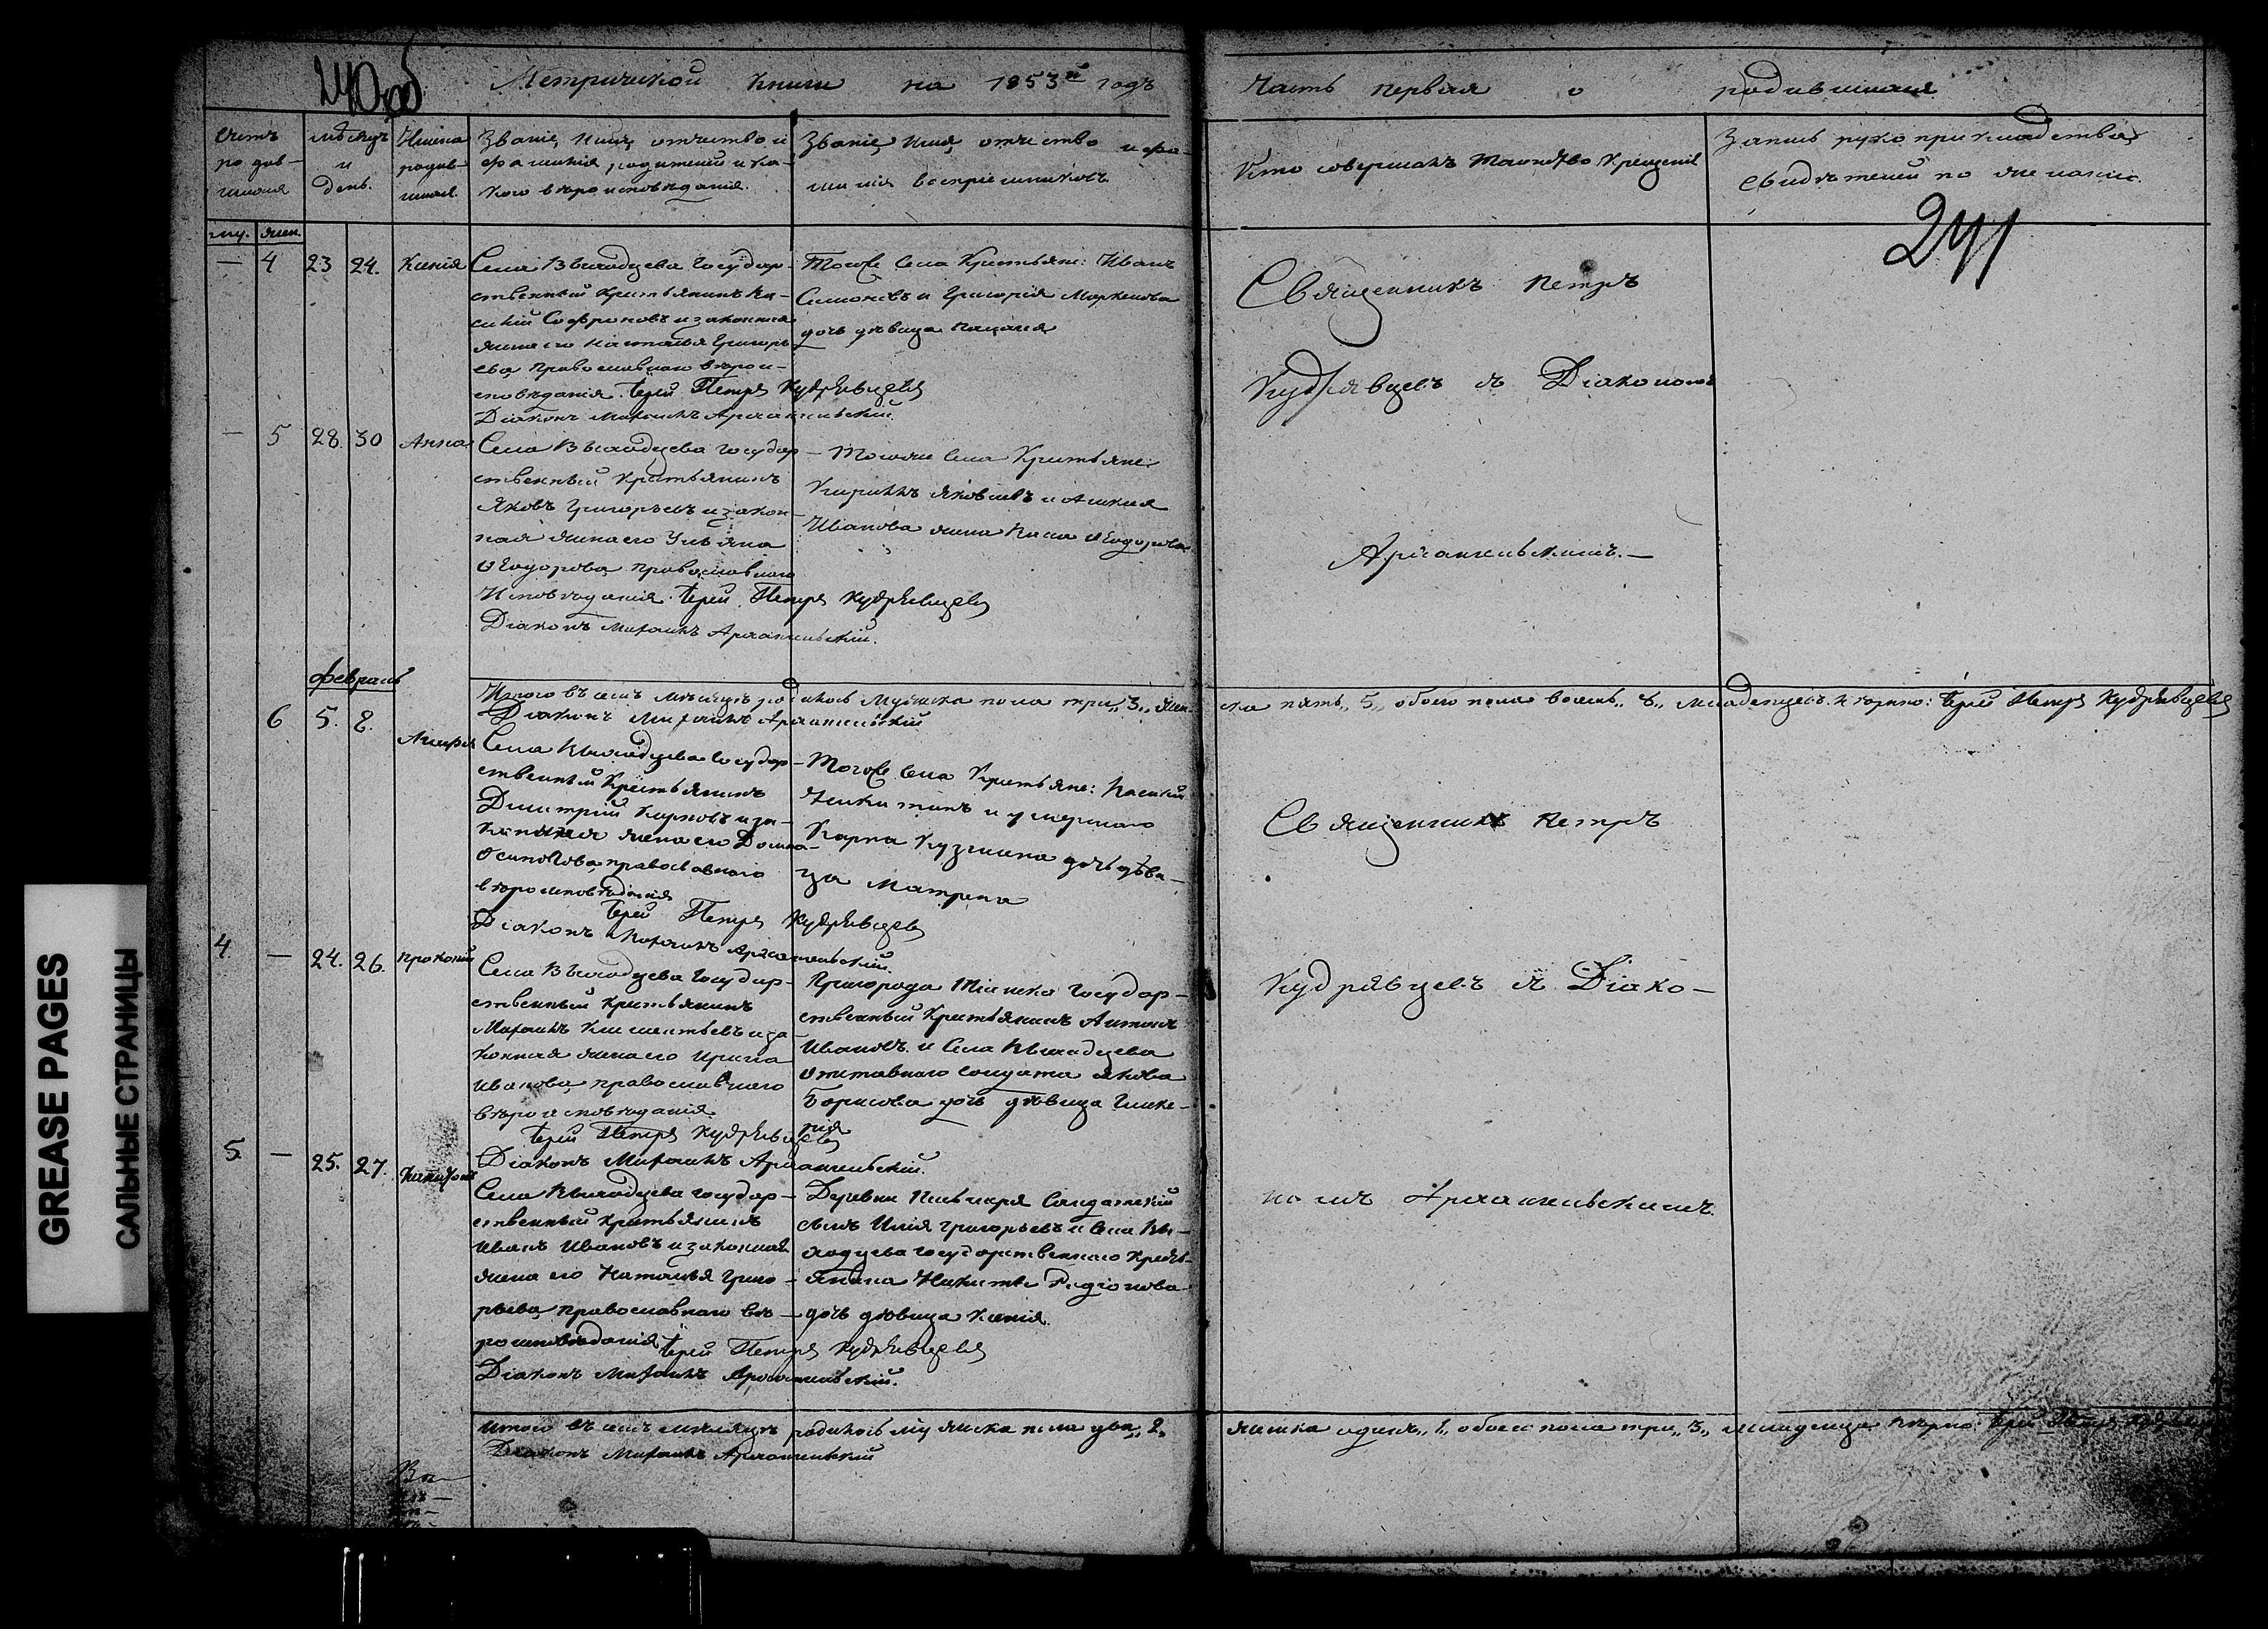 240 об
Метрической книги на 1853й годъ
Часть первая о родившихся
Счетъ родив-шихся
муж. жен.
Мѣсяцъ и день.
Имена родив-шихся.
Званіе, имя, отчество и
фамилія родителей и ка-
кого вѣроисповѣданія.
Званіе, имя, отчество и фа-
милія воспріемниковъ
Кто совершалъ таинство крещенія
Запись рукоприкладства
свидѣтелей по желанію.
241
— 4 23 24. Ксенія
Села Выходцева Государ-
ственный крестьянинъ Ва-
силій Софроновъ и законная
жена его Наталья Григорь-
ева, православнаго вѣрои-
сповѣданія. Іерей Петръ Кудрявцевъ
Діаконъ Михаилъ Архангельскій.
Тогоже Села Крестьяне: Иванъ
Симоновъ и Григорія Маркелова
дочь дѣвица Пелагея
Священникъ Петръ
Кудрявцевъ съ Діакономъ
— 5 28. 30 Анна
Села Выходцева Государ-
ственный Крестьянинъ
Яковъ Григорьевъ и закон-
ная жена его Ульяна
Ѳеодорова, православнаго
Исповѣданія. Іерей Петръ Кудрявцевъ
Діаконъ Михаилъ Архангельскій.
Тогоже Села Крестьяне:
Кириллъ Яковлевъ и
Иванова жена Ѳеодорова
Архангельскимъ.—
Итого въ семъ мѣсяцѣ родилось Мужеска пола три „3„ жен-
ска пять „5„ обоего пола восемь „8„ младенцевъ. Вѣрно: Іерей Петръ Кудрявцевъ
Діаконъ Михаилъ Архангельскій
Февраль
6 5. 8.
Села Выходцева Государ-
ственный Крестьянинъ
Димитрій Карповъ и за-
конная жена его Домна
Осипова, православнаго
вѣроисповѣданія
Іерей Петръ Кудрявцевъ
Діаконъ Михаилъ Архангельскій.
Тогоже Села Крестьяне: Василій
Никитинъ и умершаго
Карпа Кузмина дочь дѣви-
ца Матрена
Священникъ Петръ
4. — 24. 26. Прокопій
Села Выходцева Государ-
ственный Крестьянинъ
Михаилъ Климентьевъ и за-
конная жена его Ирина
Иванова, православнаго
вѣроисповѣданія.
Іерей Петръ Кудрявцевъ
Діаконъ Михаилъ Архангельскій.
Пригорода Тіинска Государ-
ственный Крестьянинъ Антонъ
Ивановъ и Села Выходцева
отставнаго солдата Якова
Борисова дочь дѣвица Глике-
рія
Кудрявцевъ съ Діако-
5. — 25. 27. Никифоръ
Села Выходцева Государ-
ственный Крестьянинъ
Иванъ Ивановъ и законная
жена его Наталья Григо-
рьева, православнаго вѣ-
роисповѣданія Іерей Петръ Кудрявцевъ
Діаконъ Михаилъ Архангельскій.
Деревни Солдатскій
сынъ Илія Григорьевъ и Села Вы-
ходцева государственнаго Кресть-
янина Никиты Родіонова
дочь дѣвица Ксенія.
номъ Архангельскимъ.
Итого въ семъ мѣсяцѣ родилось мужеска пола два „2„
женска одинъ „1„ обоего пола три „3„ младенца Вѣрно: Іерей Петръ Кудрявцевъ
Діаконъ Михаилъ Архангельскій
GREASE PAGES
САЛЬНЫЕ СТРАНИЦЫ